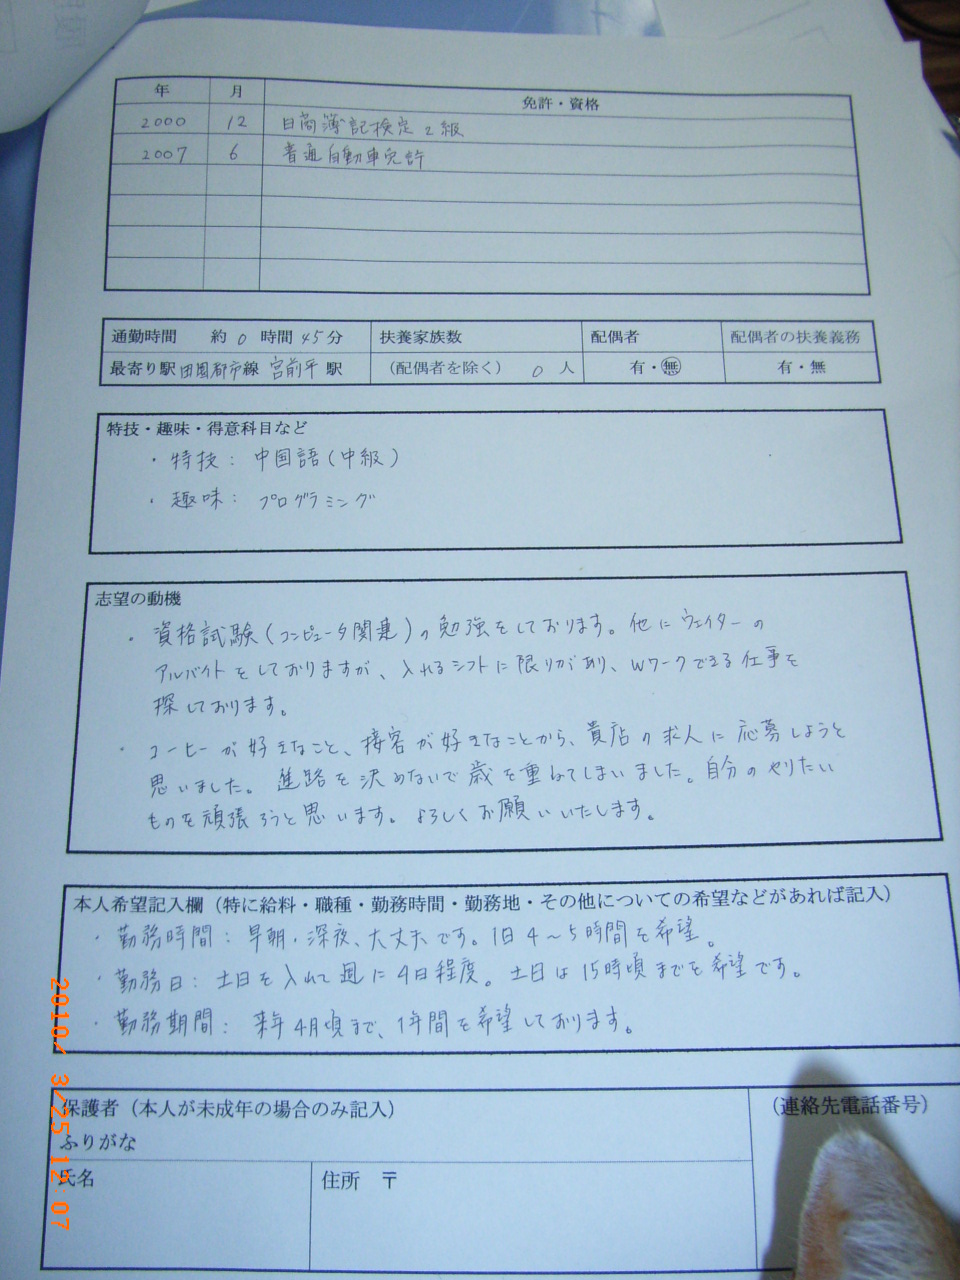 年 月 免許・資格
2000 12 日商簿記検定2級
2007 6 普通自動車免許
通勤時間 約0時間45分 扶養家族数 配偶者 配偶者の扶養義務
最寄り駅 田園都市線 宮前平駅 (配偶者を除く) 0人 有・無 有・無
特技・趣味・得意科目など
・特技：中国語(中級)
・趣味：プログラミング
志望の動機
・資格試験(コンピュータ関連)の勉強をしております。他にウェイターの
アルバイトをしておりますが、入れるシフトに限りがあり、Wワークできる仕事を
探しております。
・コーヒーが好きなこと、接客が好きなことから、貴店の求人に応募しようと
思いました。進路を決めないで歳を重ねてしまいました。自分のやりたい
ものを頑張ろうと思います。よろしくお願いいたします。
本人希望記入欄（特に給料・職種・勤務時間・勤務地・その他についての希望などがあれば記入）
・勤務時間：早朝・深夜、大丈夫です。1日4～5時間を希望。
・勤務日：土日を入れて週に4日程度。土日は15時頃までを希望です。
・勤務期間：来年4月頃まで、1年間を希望しております。
保護者（本人が未成年の場合のみ記入） （連絡先電話番号）
ふりがな
氏名 住所 〒
2010/ 3/25 12:07